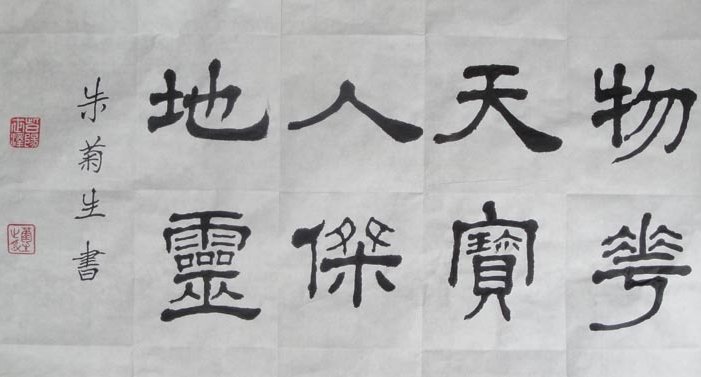 物華
天寶
人傑
地靈
朱菊生書